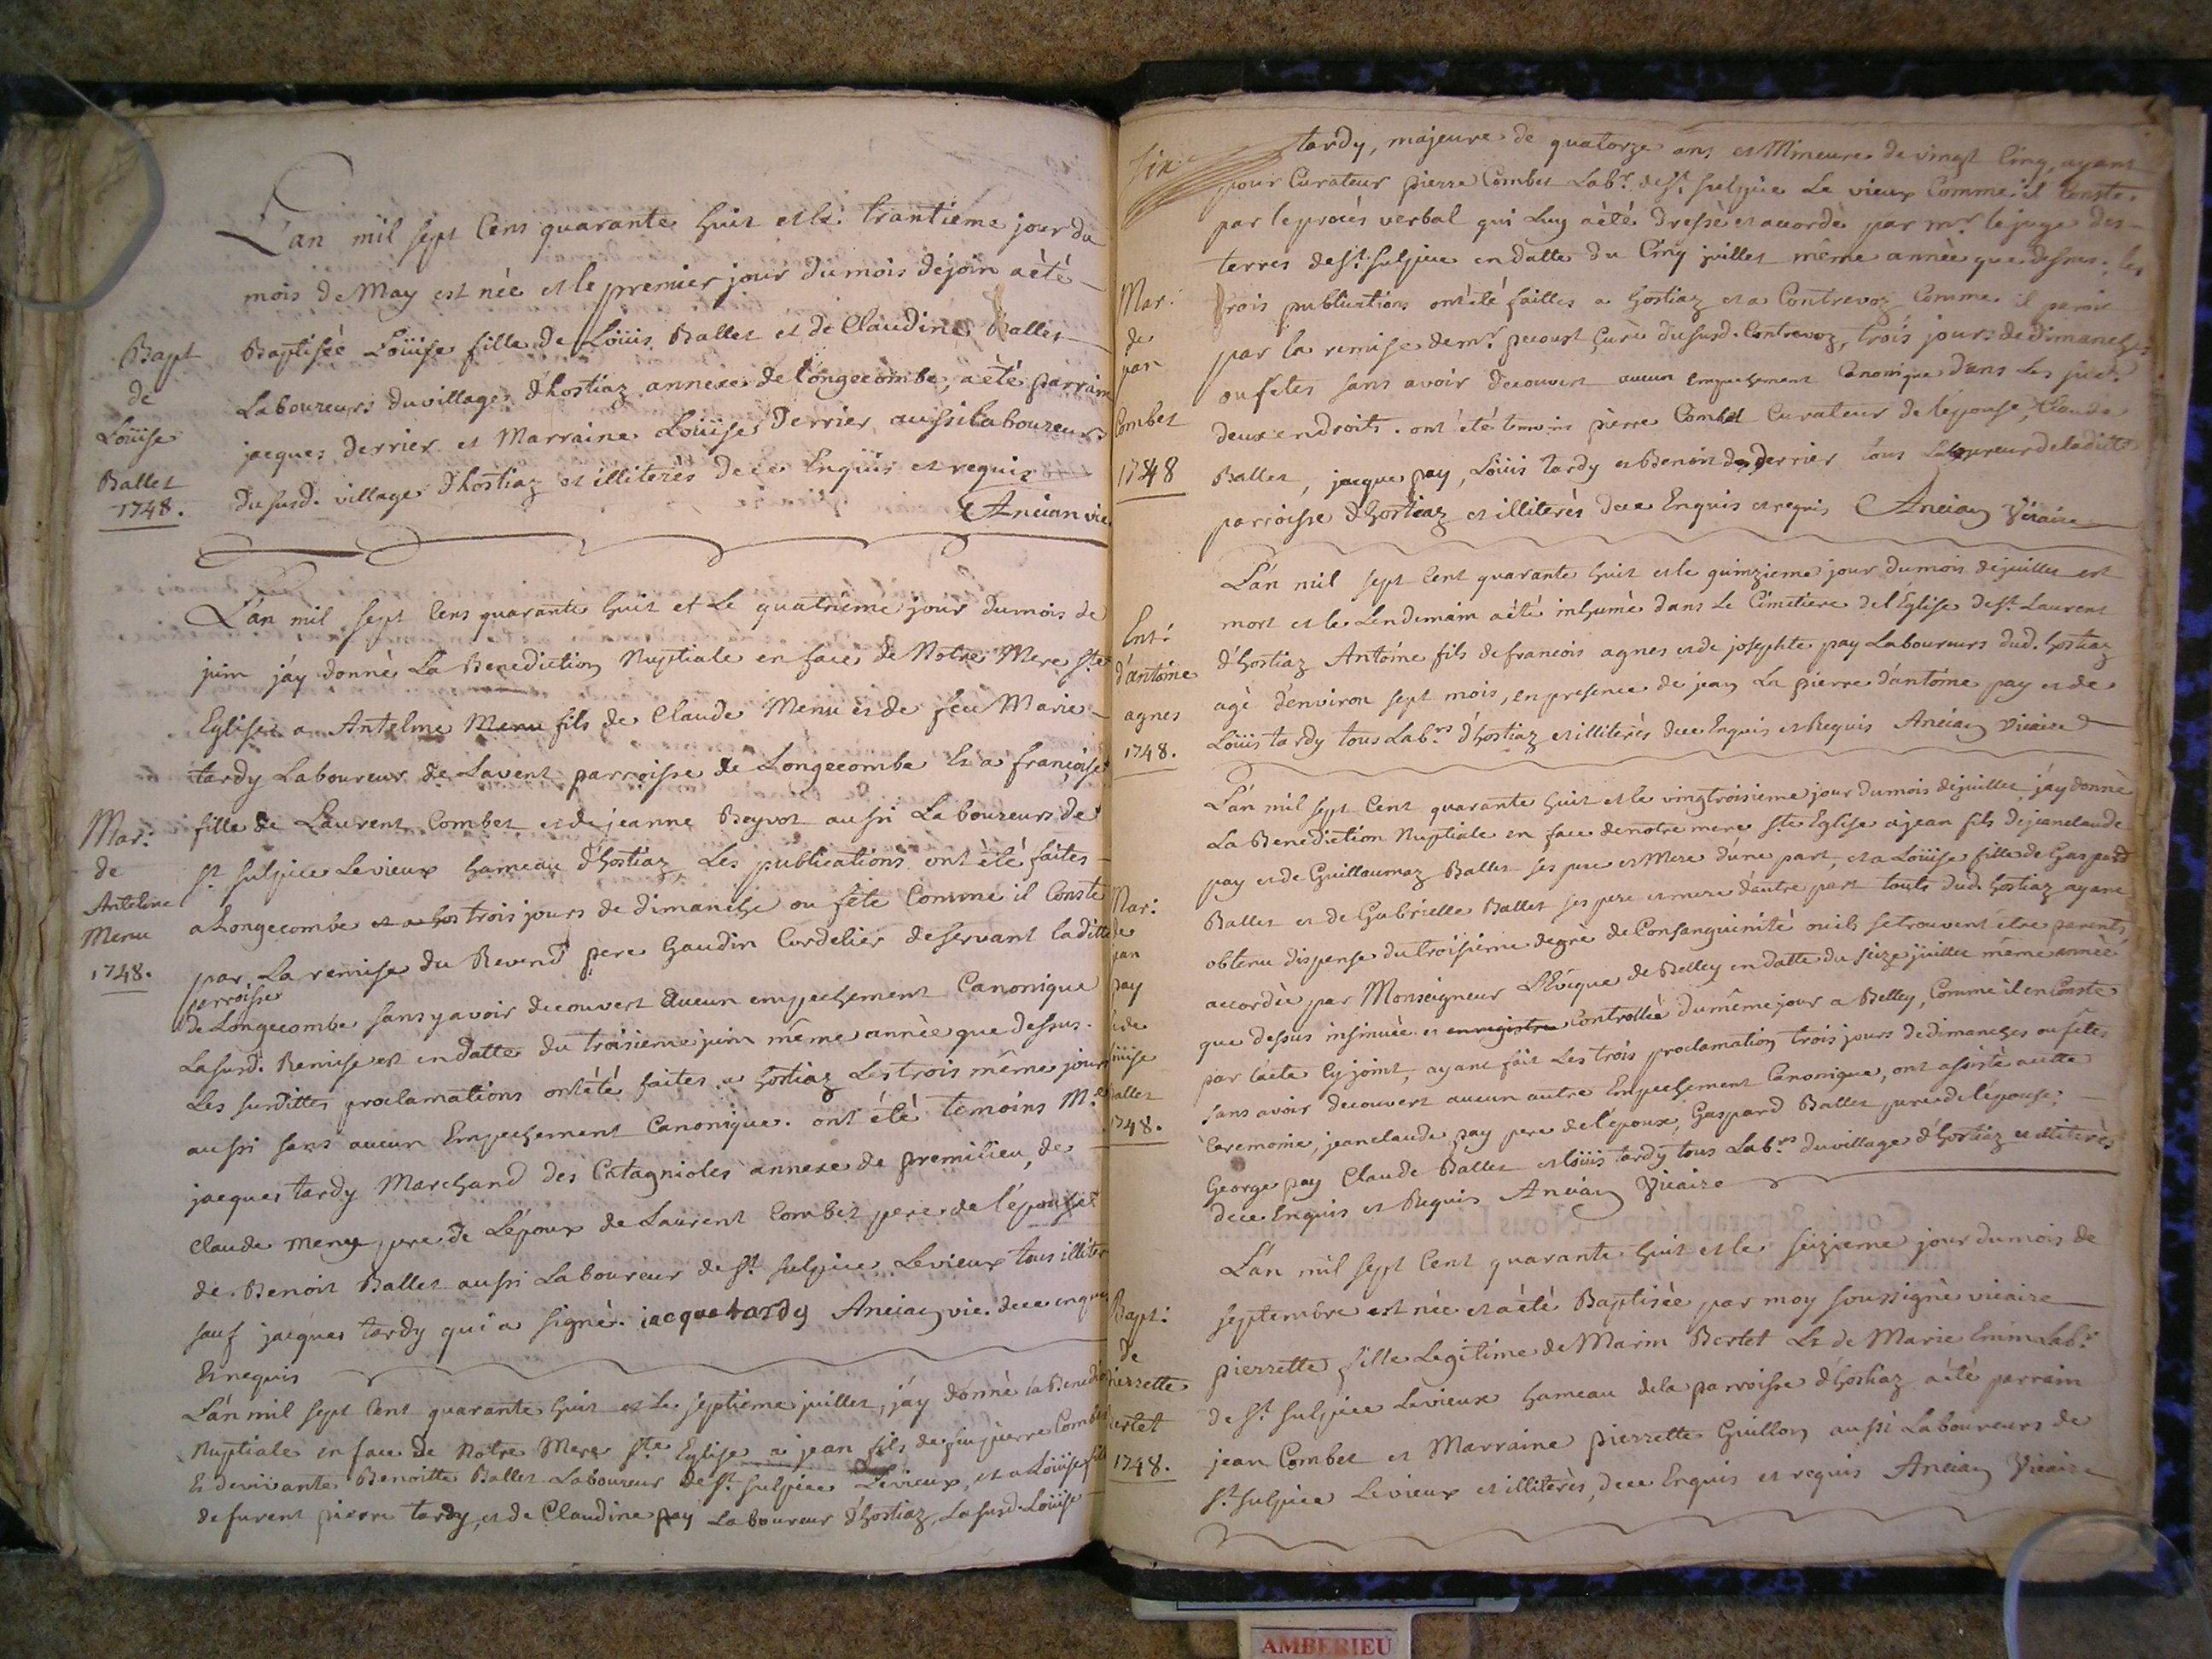 L'an mil sept Cens quarante huit et le trantieme jour du
mois de May est née et le premier jour du mois de join a èté
Bapt
de
Loüise
Ballet
1748.
Baptisée Loüise fille de Loüis Ballet et de Claudine Ballet
Laboureurs du village d'hostiaz annexe de longecombe, a èté parrain
jacques derrier et Marraine Loüise Derrier aussi laboureurs
du susd. village d'hostiaz et illiterès de ce Enquis et requis
Ancian vic.
L'an mil sept Cens quarante huit et le quatrième jour du mois de
juin j'ay donnè La Benediction Nuptiale en face de Notre Mere ste
Eglise a Antelme Menu fils de Claude Menu et de feu Marie
tardy Laboureur de Lavent parroisse de Longecombe Et a françoise
Mar:
de
Antelme
Menu
1748.
fille de Laurent Combet et de jeanne Beyvot aussi Laboureurs de
st sulpice Levieux hameau d'hostiaz, Les publications ont èté faites
a Longecombe et a hos trois jours de dimanche ou fête Comme il Conste
par La remise du Reverd pere Gaudin Cordelier deservant laditte
parroisse
de Longecombe sans y avoir decouvert aucun empechement Canonique
La susd. Remise est en datte du troisieme juin même annèe que dessus.
Les susdittes proclamations ont èté faites a hostiaz Les trois même jours
aussi sans aucun Empechement Canonique. ont èté temoins Mr.
jacques tardy Marchand des Catagnioles annexe de premilieu, de
Claude Menu pere de L'époux de Laurent Combet pere de l'épouse
de Benoit Ballet aussi Laboureur de st sulpice Levieux tous illiter
sauf jacques tardy qui a signè. iacque tardy Ancian vic. de ce enquis
Et requis
L'an mil sept Cent quarante huit et Le septieme juillet, j'ay donnè la Benedic
Nuptiale en face de Notre Mere ste Eglise a jean fils de feu pierre Combet
Et de vivante Benoitte Ballet Laboureur de st sulpice Levieux, et a Loüise fille
de furent pierre tardy, et de Claudine pay Laboureur d'hostiaz, La susd. Loüise
six
tardy, majeure de quatorze ans et Mineure de vingt Cinq, ayant
pour Curateur pierre Combet Labr. de st sulpice Le vieux Comme il Conste
par le procès verbal qui Luy a èté dressè et accordè par mr. le juge des
terres de st sulpice en datte du Cinq juillet même année que dessus, les
Mar:
de
jean
Combet
1748
trois publications ont èté faittes a hostiaz et a Contrevoz Comme il paroit
par la remise de mr. pecoust Curè du susd. Contrevoz, trois jours de Dimanches
ou fêtes sans avoir decouvert aucun empechement Canonique dans Les susd.
deux endroits. ont èté temoins pierre Combet Curateur de l'épouse, Claude
Ballet, jacque pay, Loüis tardy et Benoit derrier tous Laboureur de laditte
parroisse d'hostiaz et illiterès de ce Enquis et requis Ancian Vicaire
L'an mil sept Cent quarante huit et le quinzieme jour du mois de juillet est
mort et le Lendemain a èté inhumè dans Le Cimetiere de l'Eglise de st Laurent
Ent:
d'antoine
agnes
1748.
d'hostiaz Antoine fils de francois agnes et de josephte pay Laboureurs dud. hostiaz
agè d'environ sept mois, en presence de jean La pierre d'antoine pay et de
Loüis tardy tous Labrs d'hostiaz et illiterès de ce Enquis et Requis Ancian Vicaire
L'an mil sept Cent quarante huit et le vingtroisieme jour du mois de juillet, j'ay donnè
La Benediction Nuptiale en face de notre mere ste Eglise a jean fils de jeanclaude
pay et de Guillaumaz Ballet ses pere et Mere d'une part, et a Loüise fille de Gaspard
Mar:
de
jean
pay
et de
Loüise
Ballet
1748.
Ballet et de Gabrielle Ballet ses pere et mere d'autre part touts dud. hostiaz ayant
obtenu dispense du troisieme degrè de Consanguinité ou ils se trouvent être parents
accordèe par Monseigneur L'Evêque de Belley en datte du seize juillet même annèe
que dessus insinuèe et enregistrèe Controllèe du même jour a Belley, Comme il en Conste
par l'acte Cy joint, ayant fait Les trois proclamation trois jours de dimanches ou fêtes
sans avoir decouvert aucun autre Empechement Canonique, ont assistè a cette
Ceremonie, jeanclaude pay pere de l'époux, Gaspard Ballet pere de l'épouse,
George pay Claude Ballet et loüis tardy tous Labrs du village d'hostiaz et illiterès
de ce Enquis et Requis Ancian Vicaire
L'an mil sept Cent quarante huit et le seizieme jour du mois de
septembre est nèe et a èté Baptisèe par moy soussignè vicaire
Bapt:
de
pierrette
Bertet
1748.
pierrette fille Legitime de Marin Bertet Et de Marie Emin Labr.
de st sulpice Levieux hameau de la parroisse d'hostiaz a èté parrain
jean Combet et Marraine pierrette Guillon aussi Laboureurs de
st sulpice Levieux et illiterès, de ce Enquis et requis Ancian Vicaire
AMBERIEU